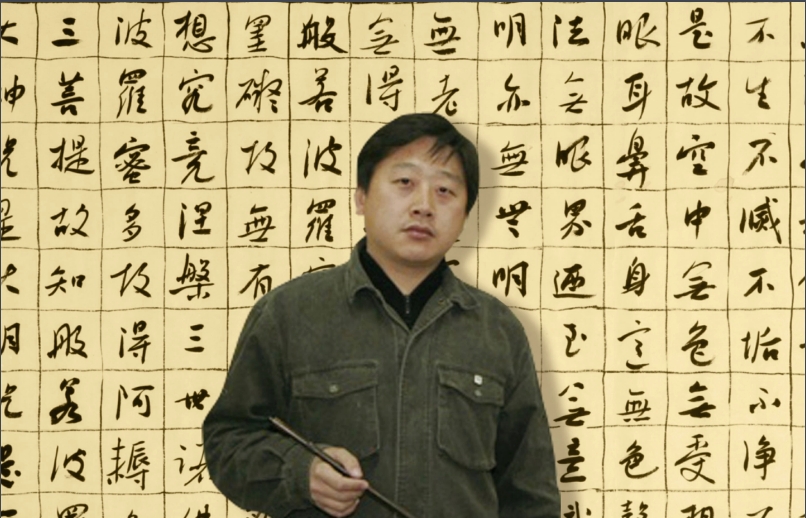 不生不滅不垢不净
是故空中無色無受想
眼耳鼻舌身意無色聲
法無眼界迺至無意識
明亦無無明
無老
無得
般若波羅
罣礙故無有
想究竟涅槃三世諸
波羅蜜多故得阿耨
三菩提故知般若波羅